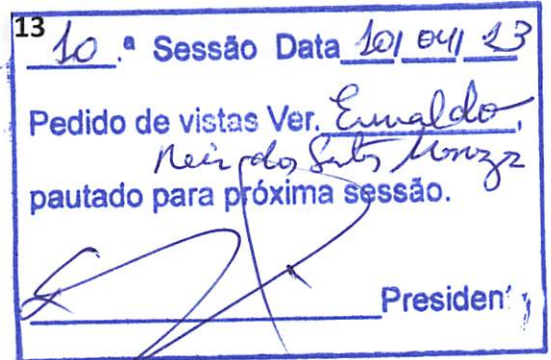 13
10.ª Sessão Data 10/04/23
Pedido de vistas Ver.
dos Santos
pautado para próxima sessão.
Presiden